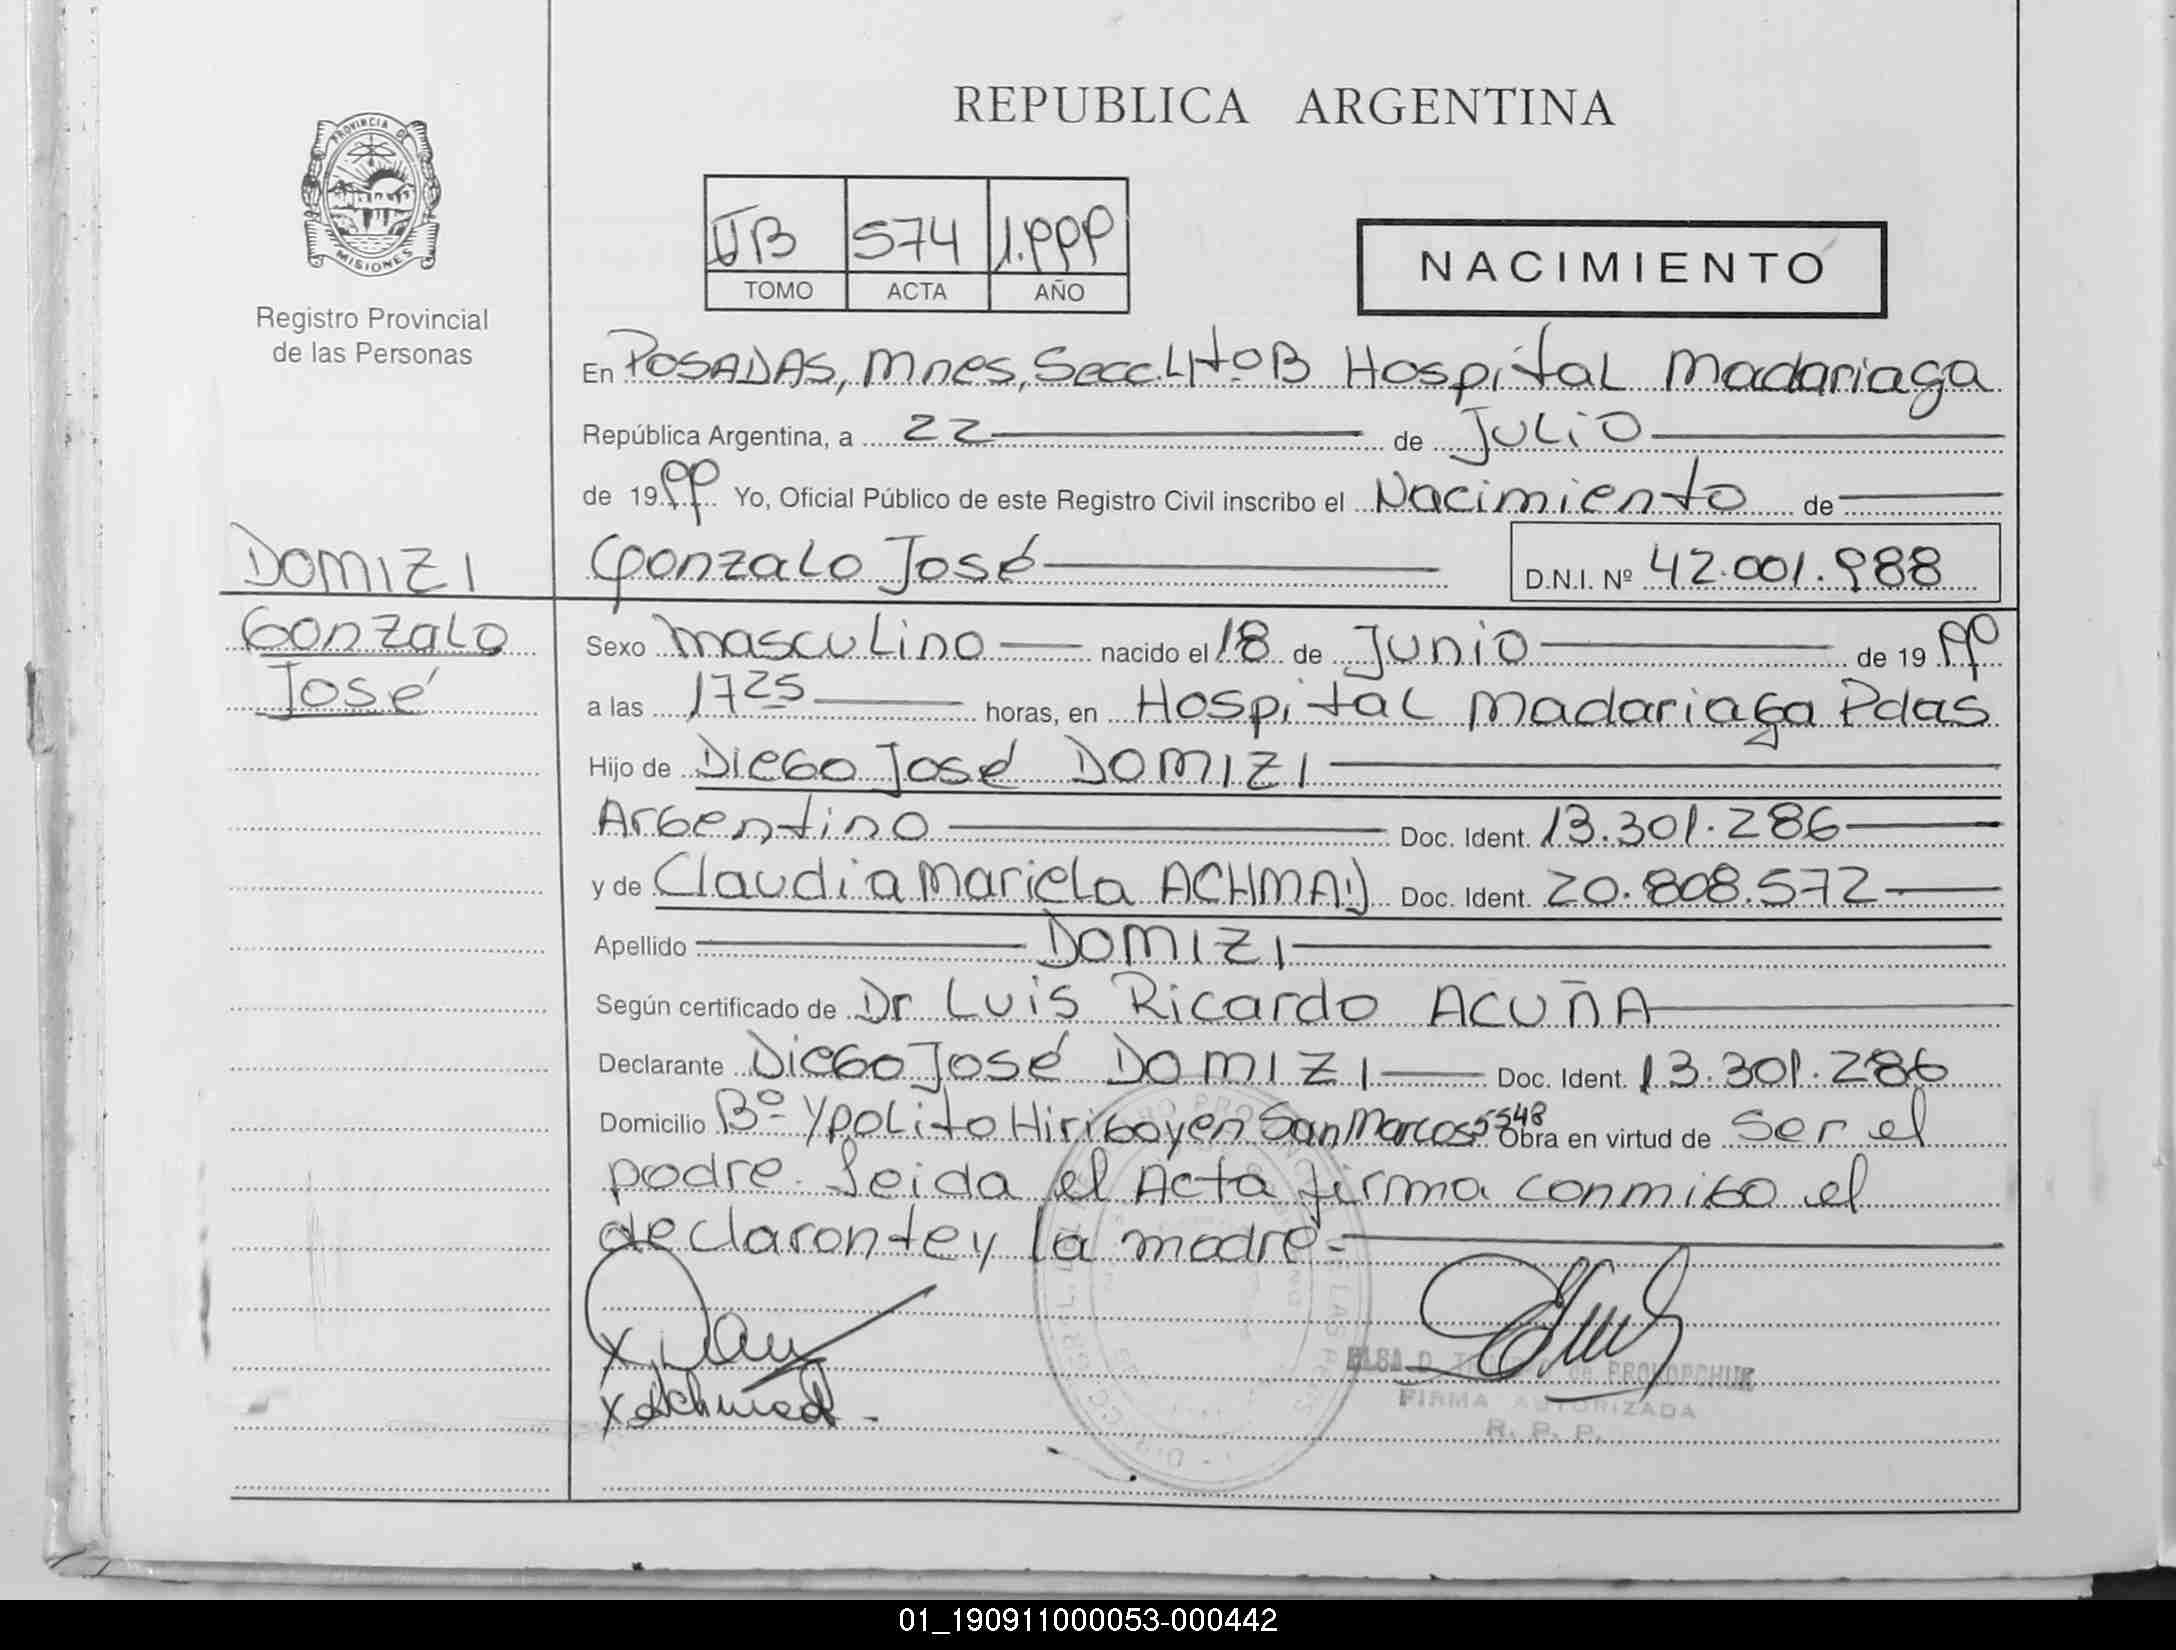 REPUBLICA ARGENTINA
PROVINCIA DE
MISIONES
Registro Provincial
de las Personas
574 1.999
TOMO ACTA AÑO
NACIMIENTO
En POSADAS, Mnes, Secc. 4toB Hospital Madariaga
República Argentina, a 22 de Julio
de 1999 Yo, Oficial Público de este Registro Civil inscribo el Nacimiento de
DOMIZI
Gonzalo José
Gonzalo José D.N.I. Nº 42.001.988
Sexo masculino nacido el 18 de Junio de 1999
a las 1725 horas, en Hospital Madariaga Pdas
Hijo de Diego José DOMIZI
Argentino Doc. Ident. 13.301.286
y de Claudia Mariela ACHMAD Doc. Ident. 20.808.572
Apellido DOMIZI
Según certificado de Dr Luis Ricardo ACUÑA
Declarante Diego José DOMIZI Doc. Ident. 13.301.286
Domicilio Bº Ypolito Hirigoyen San Marcos 5548 Obra en virtud de Ser el
padre. Leida el Acta firma conmigo el
declarante y la madre
FIRMA AUTORIZADA
R. P. P.
01_190911000053-000442